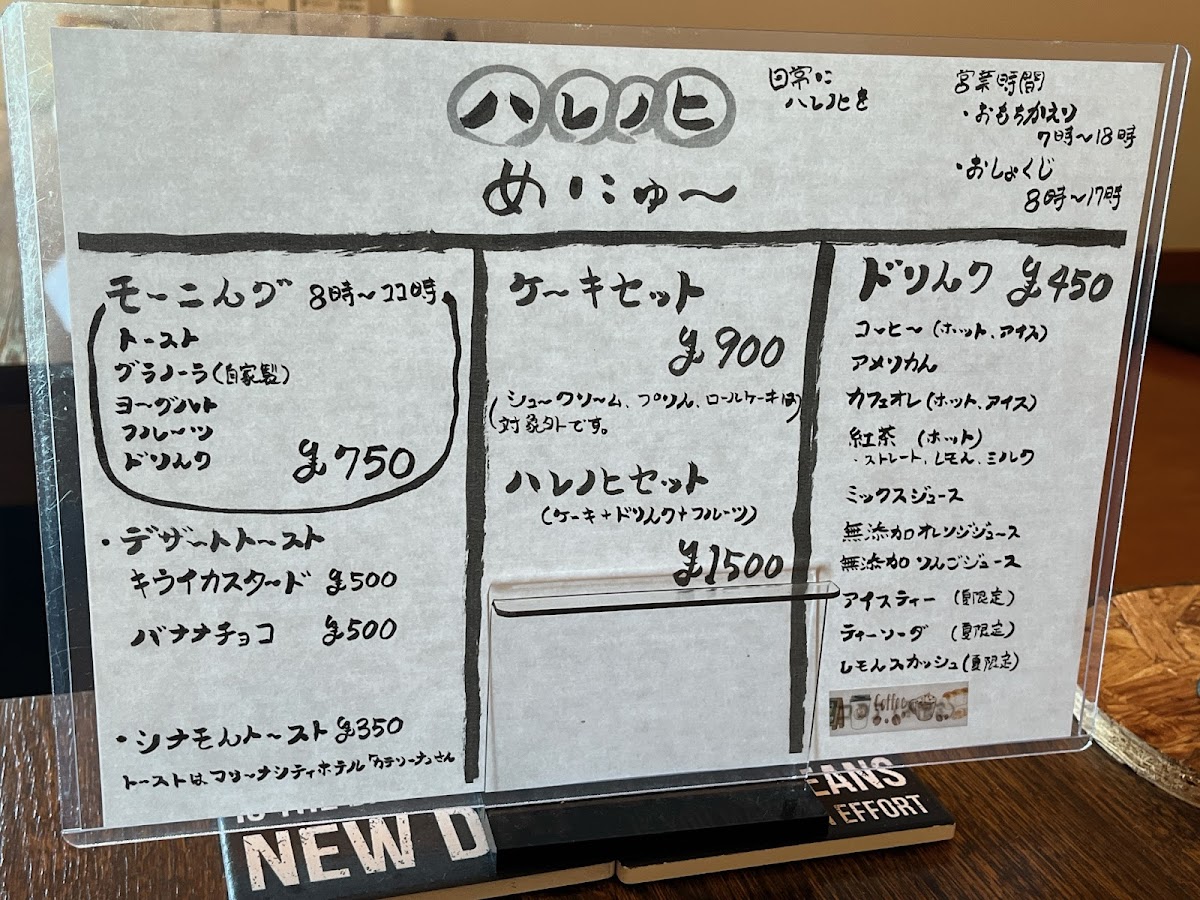 ハレノヒ
めにゅ〜
日常に
ハレノヒを
営業時間
・おもちかえり
7時〜18時
・おしょくじ
8時〜17時
モーニング 8時〜11時
トースト
グラノーラ(自家製)
ヨーグルト
フルーツ
ドリンク ¥750
・デザートトースト
キウイカスタード ¥500
バナナチョコ ¥500
・シナモントースト ¥350
トーストはマリーナシティホテル「カテリーナ」さん
ケーキセット
¥900
(シュークリーム、プリン、ロールケーキは
対象外です。)
ハレノヒセット
(ケーキ+ドリンク+フルーツ)
¥1500
ドリンク ¥450
コーヒー(ホット、アイス)
アメリカン
カフェオレ(ホット、アイス)
紅茶 (ホット)
・ストレート、レモン、ミルク
ミックスジュース
無添加オレンジジュース
無添加りんごジュース
アイスティー (夏限定)
ティーソーダ (夏限定)
レモンスカッシュ(夏限定)
Coffee
NEW D
EANS
EFFORT